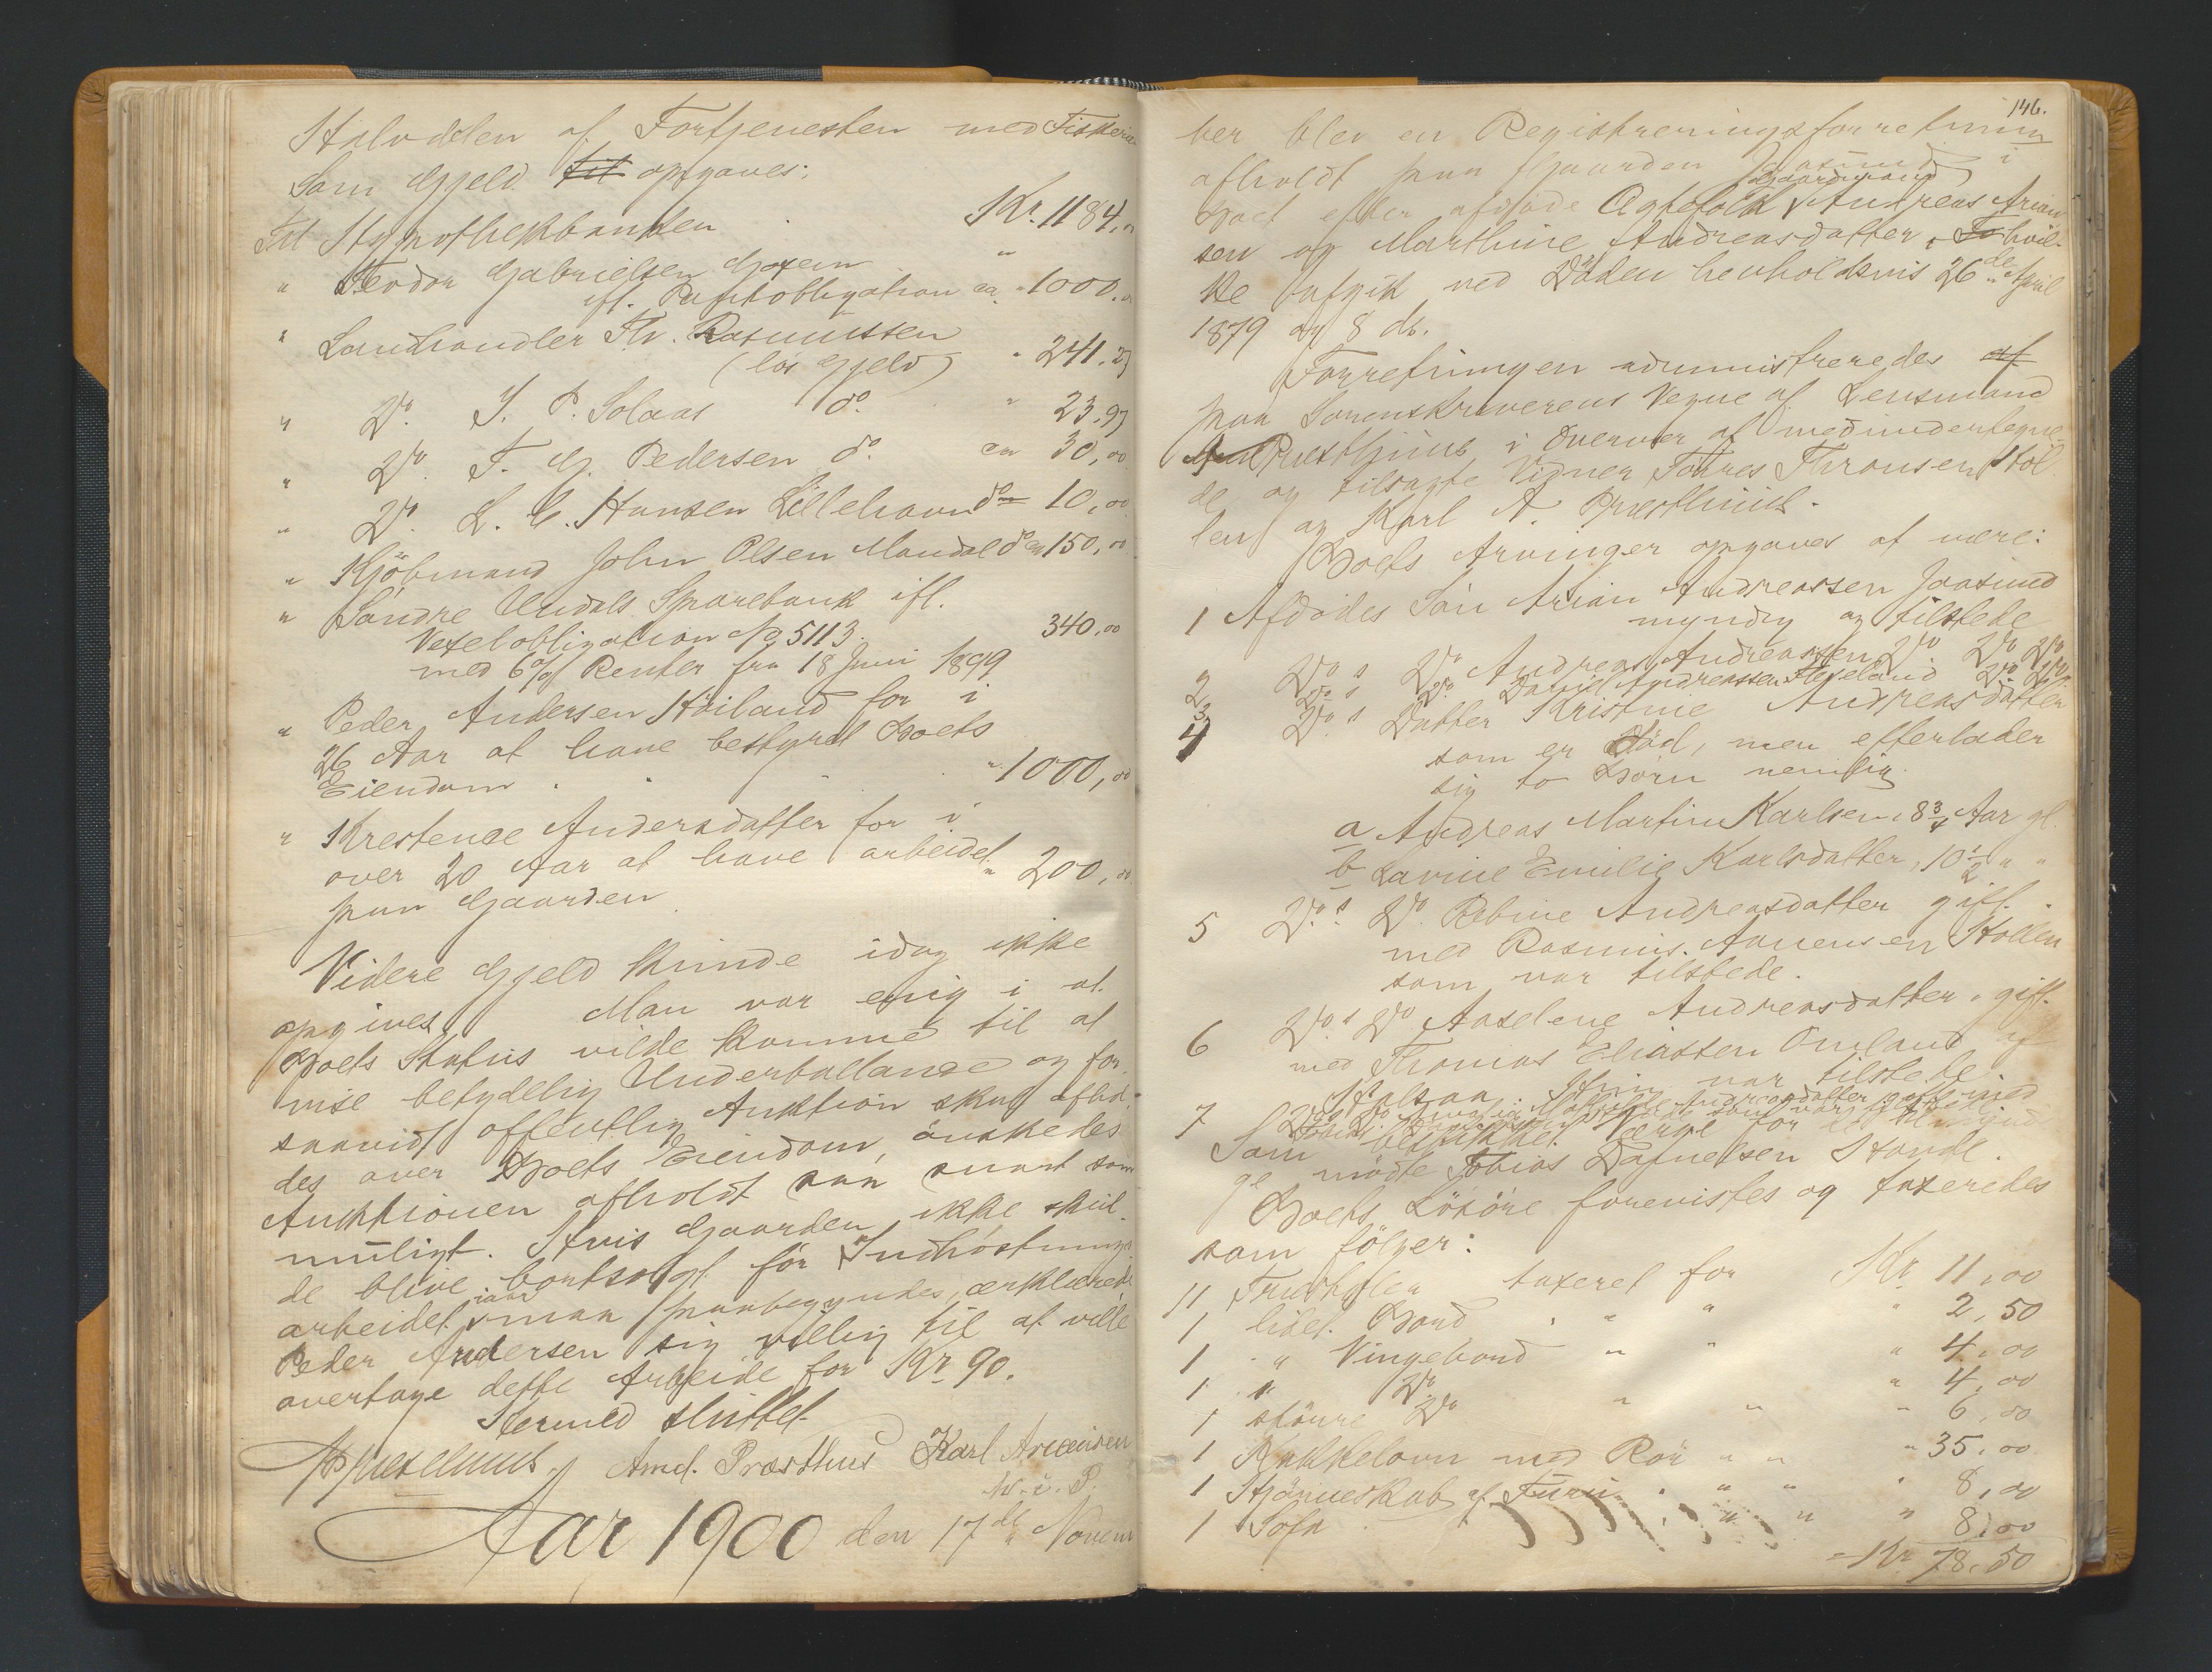 Halvdelen af Fortjenesten med Fiskeri
Som Gjeld til opgaves:
Til Hypothekbanken Kr. 1184,
" Teodor Gabrielsen
ifl. Pantobligation ca. " 1000,
" Landhandler Th. Rasmussen
(løs Gjeld) " 241,
" Do. J. P. Solaas do. " 23,97
" Do. T. G. Pedersen do. ca 30,00
" Do. L. C. Hansen Lillehavn do 10,00
" Kjöbmand John Olsen Mandal do ca 150,00
" Söndre Undals Sparebank ifl.
Vexelobligation No 5113. 340,00
med 6% Renter fra 18 Juni 1899
" Peder Andersen Höiland for i
26 Aar at have bestyret Boets
Eiendom " 1000,00
" Krestence Andersdatter for i
over 20 Aar at have arbeidet " 200,00
paa Gaarden
Videre Gjeld kunde idag ikke
opgives. Man var enig i at
Boets Status vilde komme til at
vise betydelig Underballance og for
saavidt offentlig Auktion skul afhol-
des over Boets Eiendom, önskedes
Auktionen afholdt saa snart som
muligt. Hvis Gaarden ikke skul-
de blive bortsolgt för Indhöstnings
arbeidet iaar maa paabegyndes, erklærede
Peder Andersen sig villig til at ville
overtage dette Arbeide for Kr. 90.
Hermed sluttet
Amd. Præsthus Karl Arvensen
m. i. P.
Aar 1900 den 17de Novem
146.
ber blev en Registreringsforretning
afholdt paa Gaarden Jaasund i
Boet efter afdöde Ægtefolk Gaardmand Andreas Arian
sen og Marthine Andreasdatter, To hvil-
ke afgik ved Döden henholdsvis 26de April
1879 og 8 ds.
Forretningen administreredes af
paa Sorenskriverens Vegne af Lensmand
Præsthuus i Overvær af medundertegne-
de og tilsagte Vidner Törres Thronsen Stöl-
len og Karl A. Præsthuus.
Boets Arvinger opgaves at være:
1 Afdödes Sön Arian Andreassen Jaasund
myndig og tilstede
2 Do s Do Andreas Andreassen Do Do Do
3 Do s Do Daniel Andreassen Do Do
4 Do s Datter Kristine Andreasdatter
som er Död, men efterlader
sig to Börn nemlig
a Andreas Martin Karlsen, 8 3/4 Aar gl.
b Lavine Emilie Karlsdatter, 10 1/2 " "
5 Do s Do Rebine Andreasdatter gift.
med Rasmus Aanensen Stöllen
som var tilstede.
6 Do s Do Aaselene Andreasdatter, gift.
med Thomas Eliassen Omland
Halsaa. Hun var tilstede
7 Do s Do Andreasdatter gift med
som var tilstede
Som beskikket Værge for de umyndi
ge mödte Tobias Danielsen Standl.
Boets Lösöre forevistes og taxeredes
som fölger:
11 Træstolea taxeret for Kr 11,00
1 lidet Bord " " " 2,50
1 " Vingebord " " " 4,00
1 " Do " 4,00
1 större Do " " " 6,00
1 Kakkelovn med Rör " " " 35,00
1 Hjörneskab af Furu " " " 8,00
1 Sofa " " " 8,00
= Kr. 78,50